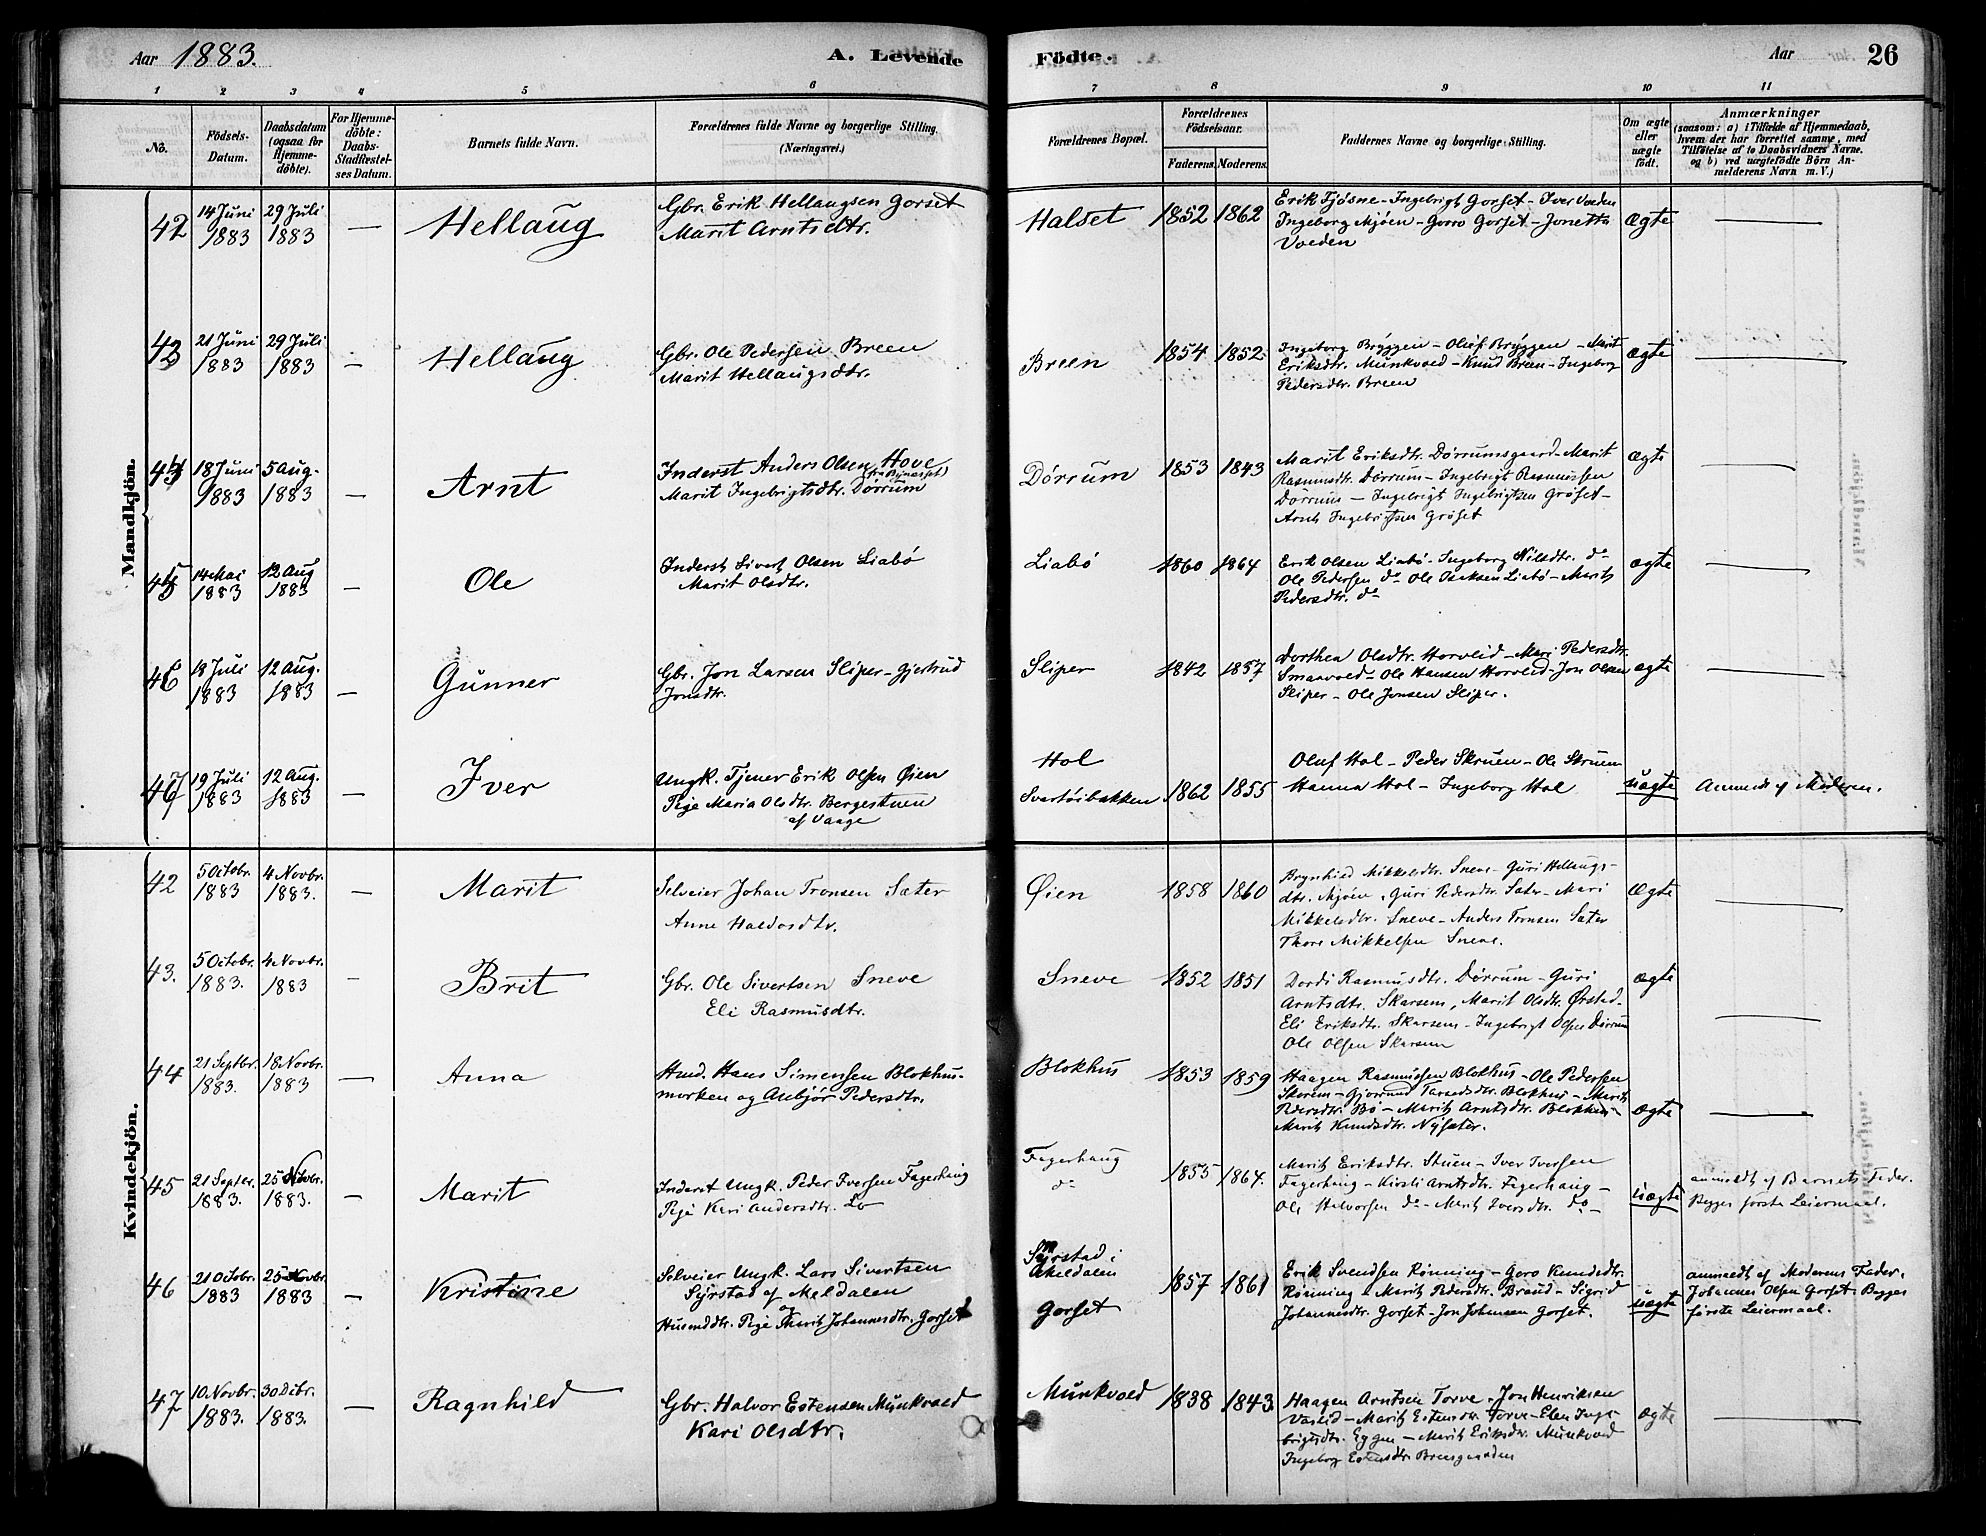 Aar 1883. A. Levende Födte. Aar 26
1 2 3 4 5 6 7 8 9 10 11
No.
Födsels-Datum.
Daabsdatum (ogsaa for Hjemmedöbte).
For Hjemmedöbte: Daabs-Stadfæstelses Datum.
Barnets fulde Navn.
Forældrenes fulde Navne og borgerlige Stilling. (Næringsvei.)
Forældrenes Bopæl.
Forældrenes Födselsaar.
Faderens. Moderens.
Faddernes Navne og borgerlige Stilling.
Om ægte eller uægte födt.
Anmærkninger
(saasom: a) i Tilfælde af Hjemmedaab,
hvem der har forrettet samme, med
Tilföielse af to Daabsvidners Navne.
og b) ved uægtefödte Börn Anmelderens Navn m. V.)
Mandkjön.
42 14 Juni 1883 29 Juli 1883 — Hellaug
Gbr. Erik Hellaugsen Gorset
Marit Arntsdtr.
Halset 1852 1862
Erik Tjösne - Ingebrigt Gorset - Iver Voeden
Ingeborg Mjøen - Goro Gorset - Jonetta
Voeden
Ægte —
43 21 Juni 1883 29 Juli 1883 — Hellaug
Gbr. Ole Pedersen Breen
Marit Hellaugsdtr.
Breen 1854 1852
Ingeborg Bryggen - Oluf Bryggen - Marit
Eriksdtr. Munkvoed - Knud Breen - Ingeborg
Pedersdtr. Breen
ægte —
44 18 Juni 1883 5 Aug. 1883 — Arnt
Inderst Anders Olsen Hove
(fra Bynesset)
Marit Ingebrigtsdtr. Dørrum
Dørrum 1853 1843
Marit Eriksdtr. Dørrumsgaard - Marit
Rasmusdtr. Dørrum - Ingebrigt Rasmussen
Dørrum - Ingebrigt Ingebrigtsen Grøset -
Arnt Ingebrigtsen Grøset
ægte —
45 14 Mai 1883 12 Aug 1883 — Ole
Inderst Sivert Olsen Liabø
Marit Olsdtr.
Liabø 1860 1864
Erik Olsen Liabø - Ingeborg Nilsdtr. do
Ole Pedersen do Ole Isaksen Liabø - Marit
Pedersdtr. do
ægte —
46 18 Juli 1883 12 Aug. 1883 — Gunner
Gbr. Jon Larsen Sliper - Gjertrud
Jonsdtr.
Sliper 1842 1857
Dorthea Olsdtr. Horvlid - Mari Pedersdtr.
Smaavoed - Ole Hansen Horvlid - Jon Olsen
Sliper - Ole Jonsen Sliper.
ægte —
47 19 Juli 1883 12 Aug. 1883 — Iver
Ungk. Tjener Erik Olsen Øien
Pige Maria Olsdtr. Bergestuen
af Vaage
Hol
Svartøibakken 1862 1855
Oluf Hol - Peder Skruen - Ole Skruen
Hanna Hol - Ingeborg Hol
uægte
Anmeldt af Moderen.
Kvindekjön.
42 5 Octobr. 1883 4 Novbr. 1883. — Marit
Selveier Johan Tronsen Sæter
Anne Haldosdtr.
Øien 1858 1860
Brynhild Mikkelsdtr. Sneve - Guri Hellaugs-
dtr. Mjøen, Guri Pedersdtr. Sæter - Mari
Mikkelsdtr. Sneve - Anders Tronsen Sæter
Thore Mikkelsen Sneve.
Ægte —
43. 5 Octobr. 1883. 4 Novbr. 1883 — Brit
Gbr. Ole Sivertsen Sneve
Eli Rasmusdtr.
Sneve 1852 1851
Dordi Rasmusdtr. Dørrum - Guri
Arntsdtr. Skarsem, Marit Olsdtr. Ørstad -
Eli Eriksdtr. Skarsem - Ingebrigt Olsen Dørrum
Ole Olsen Skarsem
ægte —
44 21 Septbr. 1883. 18 Novbr. 1883 — Anna
Hmd. Hans Simensen Blokhus-
morken og Anbjør Pedersdtr.
Blokhus 1853 1859
Haagen Rasmussen Blokhus - Ole Pedersen
Skorem - Gjorund Tarsdtr. Blokhus - Marit
Pedersdtr. Bø - Marit Arntsdtr. Blokhus -
Marit Knudsdtr. Nysæter.
ægte —
45 21 Septbr. 1883. 25 Novbr. 1883. — Marit
Inderst Ungk. Peder Iversen Fagerhaug
Pige Kari Andersdtr. Lo
Fagerhaug
do
1855 1864.
Marit Eriksdtr. Stuen - Iver Iversen
Fagerhaug - Kirsti Arntsdtr. Fagerhaug -
Ole Halvorsen do - Marit Iversdtr. do -
uægte
anmeldt af Barnets Fader.
Begges første Leiermaal.
46 21 Octobr. 1883 25 Novbr. 1883 — Kristine
Selveier Ungk. Lars Sivertsen
Syrstad af Meldalen
Husmdtr. Pige Marit Johannesdtr. Gorset
Syrstad i
Meldalen
Gorset
1857 1861
Erik Svendsen Rønning - Goro Knudsdtr.
Rønning - Marit Pedersdtr. Brand - Sigrid
Johannesdtr. Gorset - Jon Johansen Gorset.
uægte
anmeldt af Moderens Fader,
Johannes Olsen Gorset. Begges
første Leiermaal.
47 10 Novbr. 1883. 30 Dcbr. 1883. — Ragnhild
Gbr. Halvor Estensen Munkvoed
Kari Olsdtr.
Munkvoed 1838 1843
Haagen Arntsen Torve - Jon Henriksen
Vaslid - Marit Estensdtr. Torve - Elen Inge-
brigtsdtr. Eggen - Marit Eriksdtr. Munkvoed
Ingeborg Estensdtr. Breesgaarden
ægte —